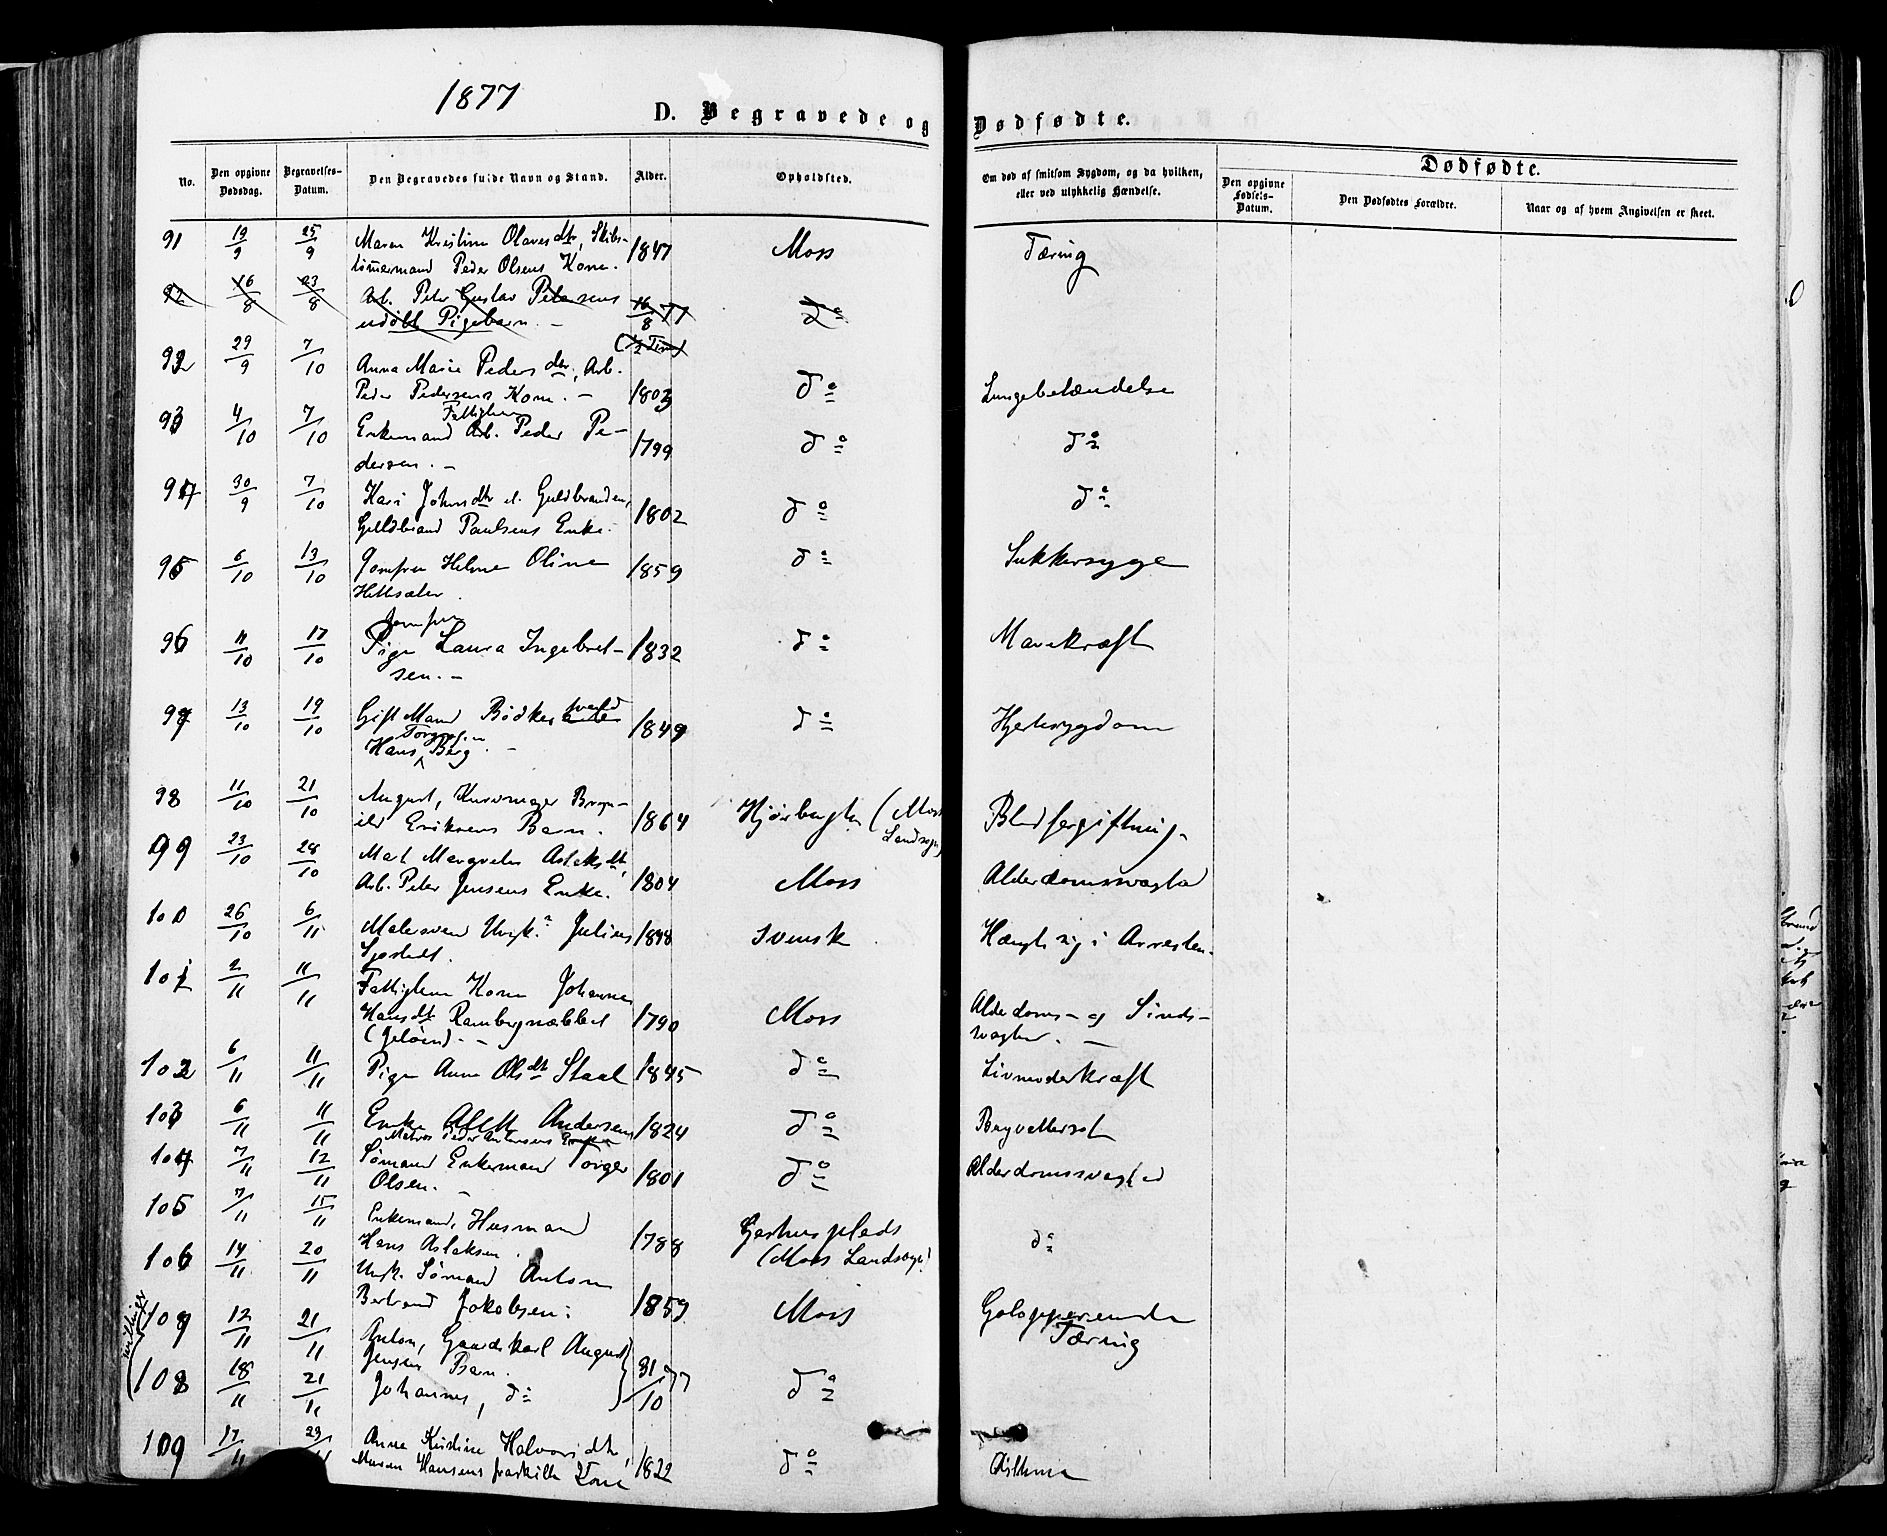 1877
D. Begravede og Dødfødte.
No. Den opgivne Dødsdag. Begravelses-Datum. Den Begravedes fulde Navn og Stand. Alder. Opholdsted. Om død af smitsom Sygdom, og da hvilken, eller ved ulykkelig Hændelse. Dødfødte.
Den opgivne Fødsels-Datum. Den Dødfødtes Forældre. Naar og af hvem Angivelsen er skeet.
91 19/9 25/9 Maren Kristine Olavesdtr, Skibs-
tømmermand Peder Olsens Kone. 1847 Moss Tæring
92 16/8 23/8 Arb. Peter Gustav Petersens
udøbt Pigebarn. - 16/8 77 (1/2 Time) do
92 29/9 7/10 Anna Marie Pedersdtr, Arb.
Peder Pedersens Kone. - 1803 do Lungebetændelse
93 4/10 7/10 Enkemand Arb. Fattiglem Peder Pe-
dersen. - 1799 do do
94 30/9 7/10 Kari Johnsdtr el. Guldbrandsen,
Guldbrand Paulsens Enke. 1802 do do
95 6/10 13/10 Jomfru Helene Oline 1859 do Sukkersyge
96 11/10 17/10 Jomfru
Pige Laura Ingebret-
sen. - 1832 do Mavekræft
97 13/10 19/10 Gift Mand Bødkersvend
Hans Berg. - 1849 do Hjertesygdom
98 11/10 21/10 August, Kurvmager
Eriksens Barn. 1864 (Moss Landsogn) Blodforgiftning.
99 23/10 28/10 Mat. Margrete Aslaksdtr,
Arb. Peter Jensens Enke. 1804 Moss Alderdomssvaghed
100 26/10 6/11 Malersvend Ungk. Julius
Sjøstedt. 1848 Svensk Hængt sig i Arresten.
101 2/11 11/11 Fattiglem Kone Johanne
Hansdtr Rambergnæbbet
(Jeløen). - 1790 Moss Alderdoms- og Sinds-
svaghed. -
102 6/11 11/11 Pige Anne Olsdtr Staal 1845 do Livmoderkræft
103 6/11 11/11 Enke Andersen 1824 do Brystvattersot
104 7/11 12/11 Sømand Enkemand Torger
Olsen. - 1801 do Alderdomssvaghed
105 7/11 15/11 Enkemand, Husmand
Hans Aslaksen. 1788 (Moss Landsogn) do
106 14/11 20/11 Ungk. Sømand Anton
Bertrand Jakobsen. 1859 Moss Galopperende
Tæring
107 12/11 21/11 Anton, Gaardskarl August
Jensens Barn.
108 18/11 21/11 Johannes, do 31/10 77 do
Tvillinger
109 17/11 23/11 Anne Kristine Halvorsdtr,
Hansens fraskilte Kone 1822 do Asthma